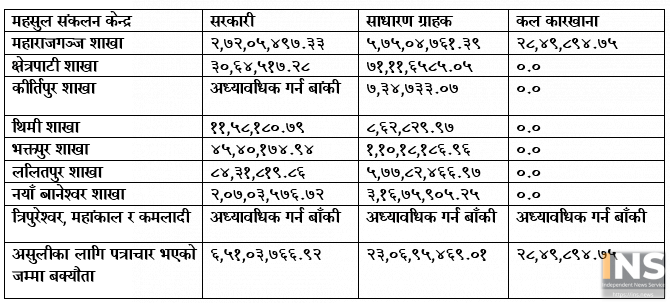 महसुल संकलन केन्द्र सरकारी साधारण ग्राहक कल कारखाना
महाराजगञ्ज शाखा २,७२,०५,४९७.३३ ५,७५,०४,७६१.३९ २८,४९,८९४.७५
क्षेत्रपाटी शाखा ३०,६४,५१७.२८ ७१,११,६५८५.०५ ०.०
कीर्तिपुर शाखा अध्यावधिक गर्न बांकी ७,३४,७३३.०७ ०.०
थिमी शाखा ११,५८,१८०.७९ ८,६२,८२९.९७ ०.०
भक्तपुर शाखा ४५,४०,१७४.९४ १,१०,१८,१८६.९६ ०.०
ललितपुर शाखा ८४,३१,८१९.८६ ५,७७,८२,४६६.९७ ०.०
नयाँ बानेश्वर शाखा २,०७,०३,५७६.७२ ३,१६,७५,९०५.२५ ०.०
त्रिपुरेश्वर, महांकाल र कमलादी अध्यावधिक गर्न बाँकी अध्यावधिक गर्न बाँकी अध्यावधिक गर्न बाँकी
असुलीका लागि पत्राचार भएको ६,५१,०३,७६६.९२ २३,०६,९५,४६९.०१ २८,४९,८९४.७५
जम्मा बक्यौता
INS
Independent News Service